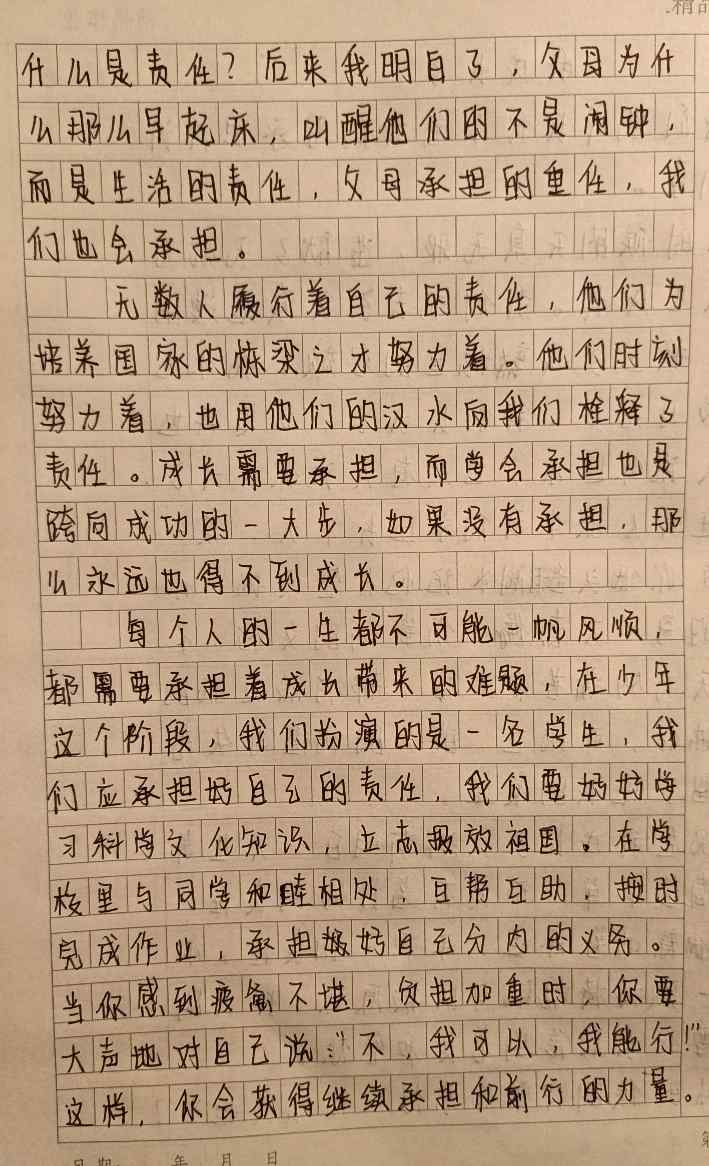 精品
什么是责任？后来我明白了，父母为什
么那么早起床，叫醒他们的不是闹钟，
而是生活的责任，父母承担的重任，我
们也会承担。
无数人履行着自己的责任，他们为
培养国家的栋梁之才努力着。他们时刻
努力着，也用他们的汉水向我们栓释了
责任。成长需要承担，而学会承担也是
跨向成功的一大步，如果没有承担，那
么永远也得不到成长。
每个人的一生都不可能一帆风顺，
都需要承担着成长带来的难题，在少年
这个阶段，我们扮演的是一名学生，我
们应承担好自己的责任，我们要好好学
习科学文化知识，立志报效祖国。在学
校里与同学和睦相处，互帮互助，按时
完成作业，承担好自己分内的义务。
当你感到疲惫不堪，负担加重时，你要
大声地对自己说："不，我可以，我能行！"
这样，你会获得继续承担和前行的力量。
日期 年 月 日
第